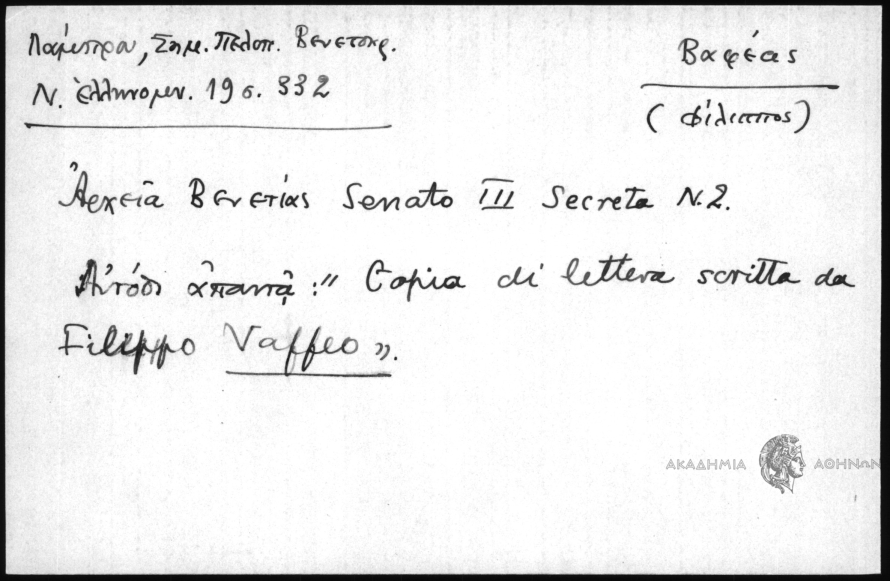 Λάμπρου, Σημ. Πελοπ. Βενετοκρ.
Ν. Ἑλληνομν. 19 σ. 332
Βαφέας
(Φίλιππος)
Ἀρχεῖα Βενετίας Senato III Secreta N. 2.
Αὐτόθι ἀπαντᾷ: " Copia di lettera scritta da
Filippo Vaffeo ».
ΑΚΑΔΗΜΙΑ ΑΘΗΝΩΝ